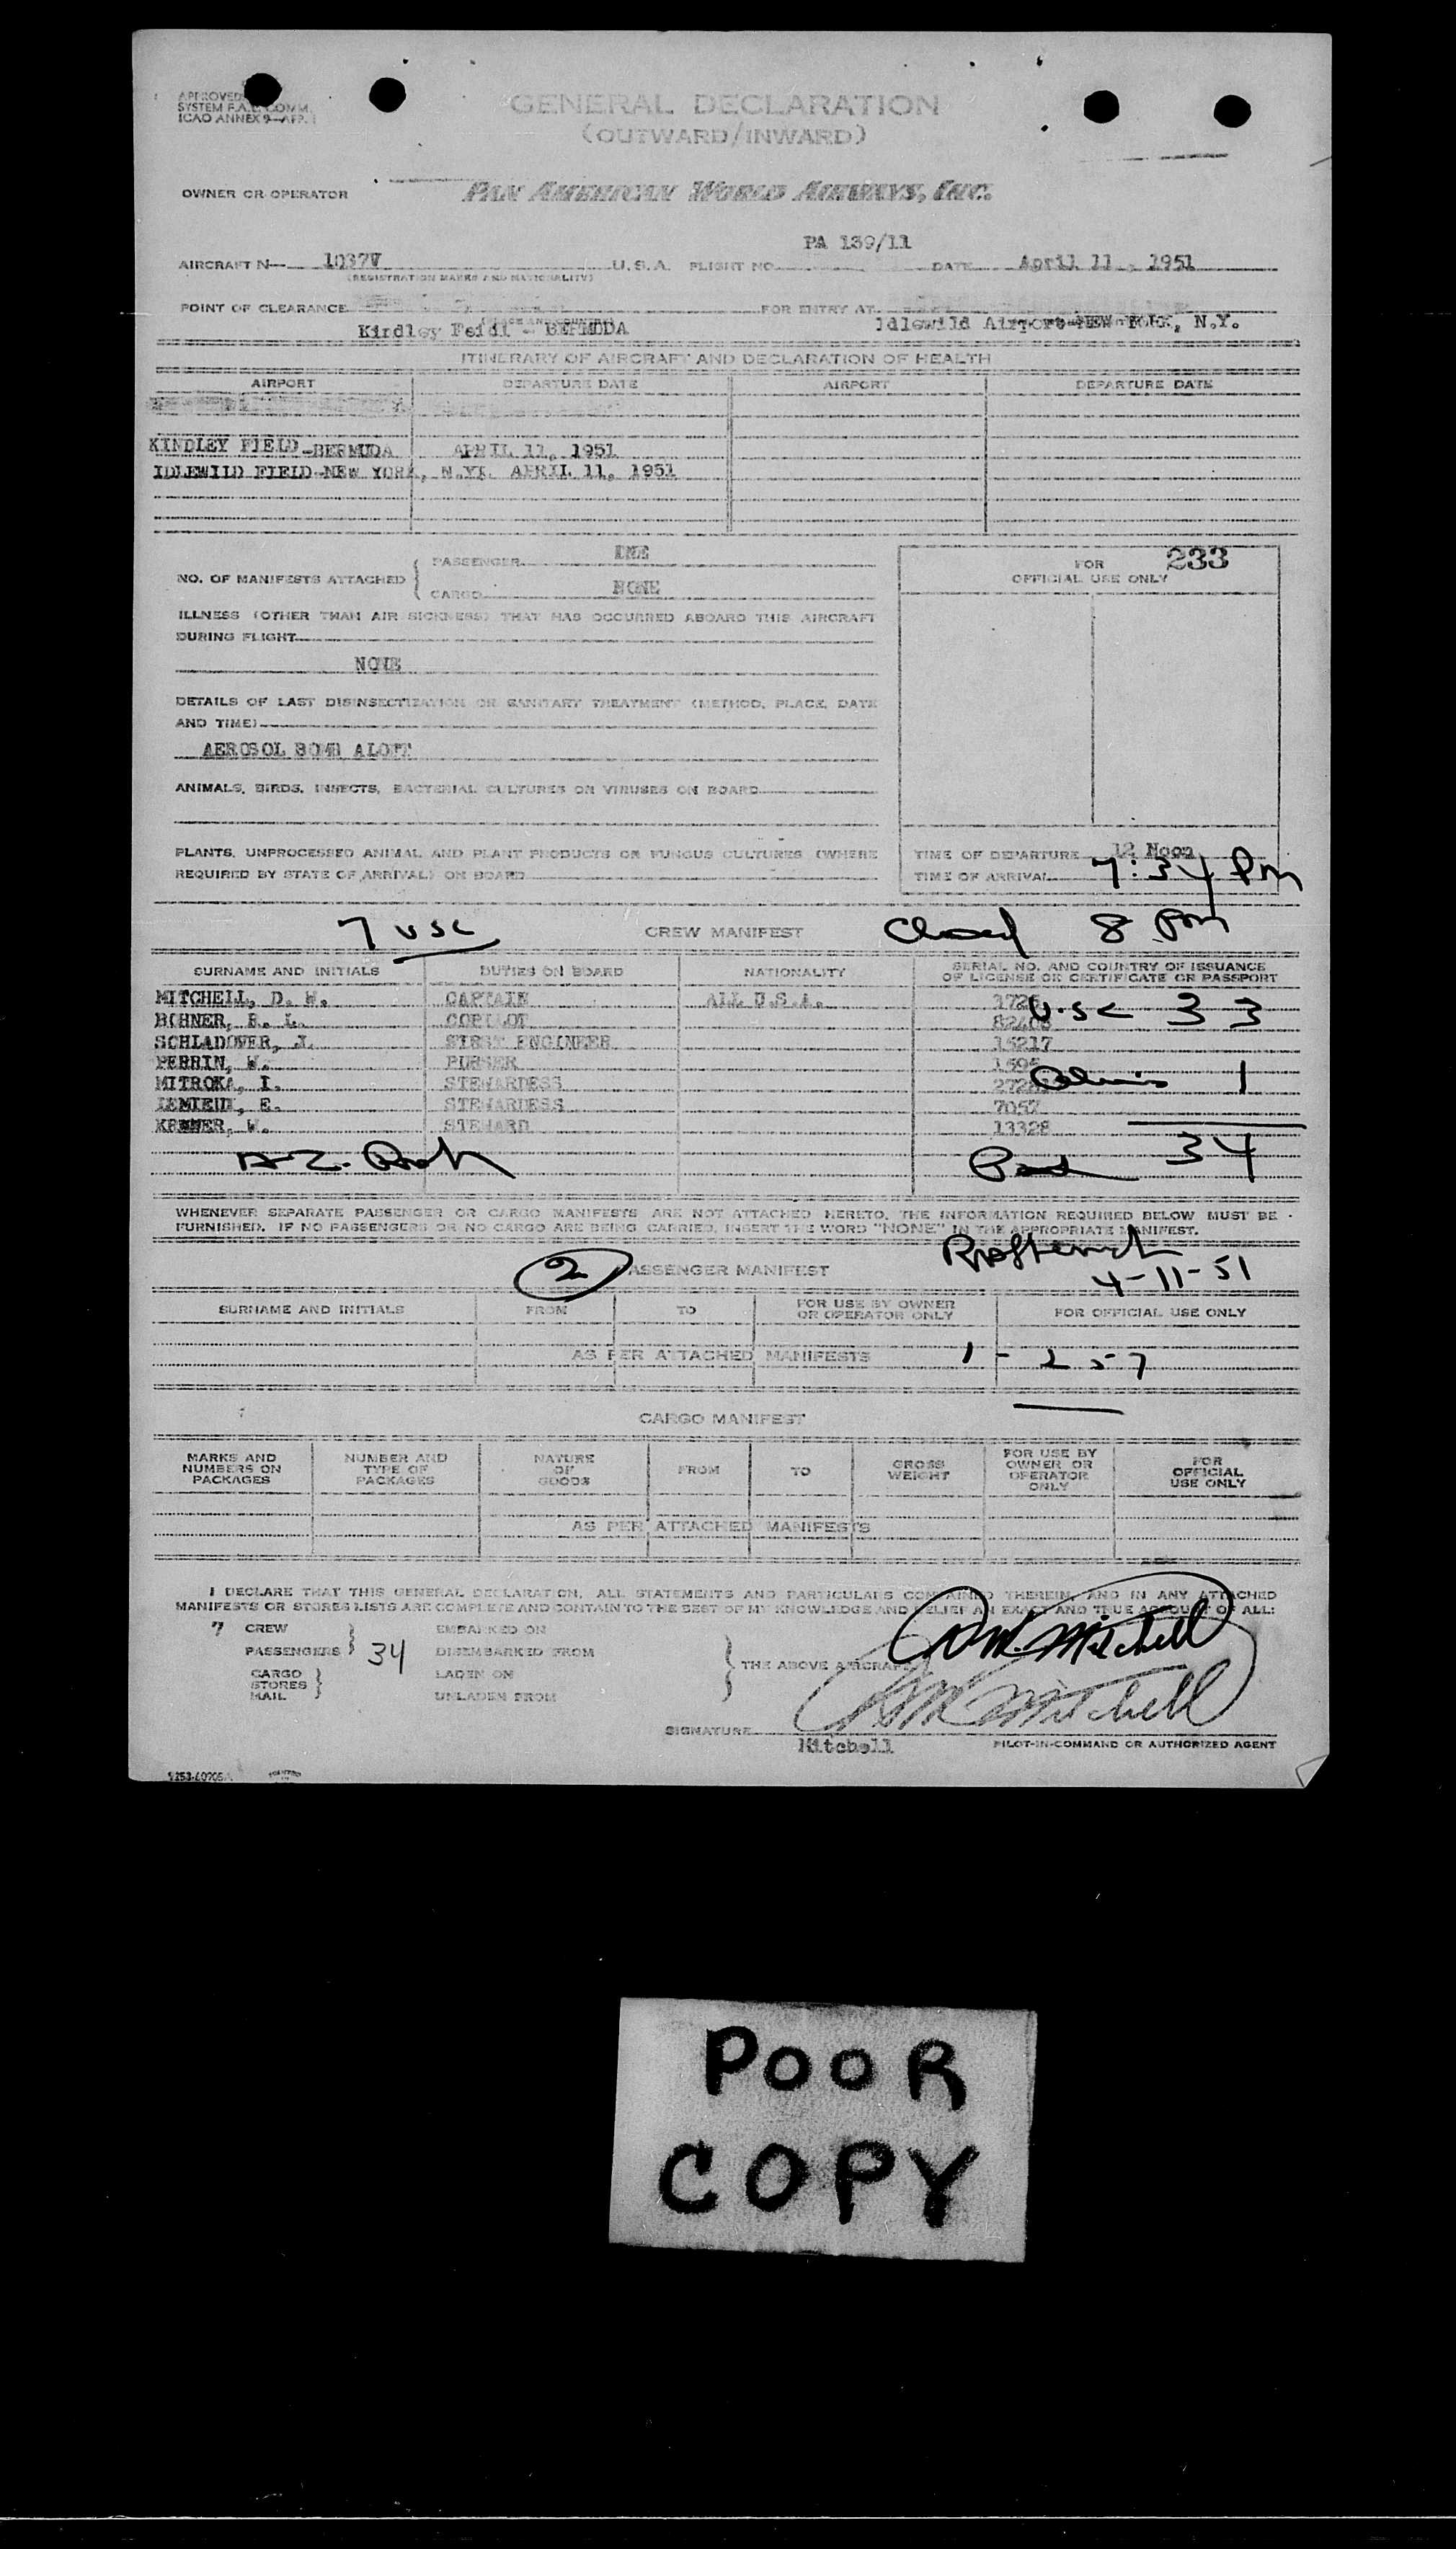 SYSTEM F.A.L. COMM.
ICAO ANNEX 9—APP. 1
GENERAL DECLARATION
(OUTWARD/INWARD)
OWNER OR OPERATOR PAN AMERICAN WORLD AIRWAYS, INC.
PA 139/11
AIRCRAFT N— 1037V U.S.A. FLIGHT NO. DATE April 11, 1951
(REGISTRATION MARKS AND NATIONALITY)
POINT OF CLEARANCE FOR ENTRY AT
Kindley Feidl - BERMUDA Idlewild Airport-NEW YORK, N.Y.
ITINERARY OF AIRCRAFT AND DECLARATION OF HEALTH
AIRPORT DEPARTURE DATE AIRPORT DEPARTURE DATE
KINDLEY FIELD-BERMUDA APRIL 11, 1951
IDLEWILD FIELD-NEW YORK, N.Y. APRIL 11, 1951
NO. OF MANIFESTS ATTACHED
PASSENGER
CARGO NONE
FOR 233
OFFICIAL USE ONLY
ILLNESS (OTHER THAN AIR SICKNESS) THAT HAS OCCURRED ABOARD THIS AIRCRAFT
DURING FLIGHT
NONE
DETAILS OF LAST DISINSECTIZATION OR SANITARY TREATMENT (METHOD, PLACE, DATE
AND TIME)
AEROSOL BOMB ALOFT
ANIMALS, BIRDS, INSECTS, BACTERIAL CULTURES OR VIRUSES ON BOARD
PLANTS, UNPROCESSED ANIMAL AND PLANT PRODUCTS OR FUNGUS CULTURES (WHERE
REQUIRED BY STATE OF ARRIVAL) ON BOARD
TIME OF DEPARTURE 12 Noon
TIME OF ARRIVAL 7:34 Pm
7 USC CREW MANIFEST Closed 8 pm
SURNAME AND INITIALS DUTIES ON BOARD NATIONALITY SERIAL NO. AND COUNTRY OF ISSUANCE
OF LICENSE OR CERTIFICATE OR PASSPORT
MITCHELL, D. W. CAPTAIN ALL U.S.A. U.S.C 33
BOHNER, R. L. COPILOT
SCHLADOVER, J. FIRST ENGINEER 15217
PERRIN, W. PURSER
MITROKA, I. STEWARDESS Aliens 1
E. STEWARDESS 7057
W. STEWARD 13328
34
WHENEVER SEPARATE PASSENGER OR CARGO MANIFESTS ARE NOT ATTACHED HERETO, THE INFORMATION REQUIRED BELOW MUST BE
FURNISHED. IF NO PASSENGERS OR NO CARGO ARE BEING CARRIED, INSERT THE WORD "NONE" IN THE APPROPRIATE MANIFEST.
2 PASSENGER MANIFEST
4-11-51
SURNAME AND INITIALS FROM TO FOR USE BY OWNER
OR OPERATOR ONLY FOR OFFICIAL USE ONLY
AS PER ATTACHED MANIFESTS 1 - 257
CARGO MANIFEST
MARKS AND
NUMBERS ON
PACKAGES
NUMBER AND
TYPE OF
PACKAGES
NATURE
OF
GOODS
FROM
TO
GROSS
WEIGHT
FOR USE BY
OWNER OR
OPERATOR
ONLY
FOR
OFFICIAL
USE ONLY
AS PER ATTACHED MANIFESTS
I DECLARE THAT THIS GENERAL DECLARATION, ALL STATEMENTS AND PARTICULARS CONTAINED THEREIN, AND IN ANY ATTACHED
MANIFESTS OR STORES LISTS ARE COMPLETE AND CONTAIN TO THE BEST OF MY KNOWLEDGE AND BELIEF AN EXACT AND TRUE ACCOUNT OF ALL:
7 CREW EMBARKED ON
PASSENGERS 34 DISEMBARKED FROM
CARGO LADEN ON THE ABOVE AIRCRAFT
STORES
MAIL UNLADEN FROM
DW Mitchell
DW Mitchell
SIGNATURE
Mitchell PILOT-IN-COMMAND OR AUTHORIZED AGENT
POOR
COPY